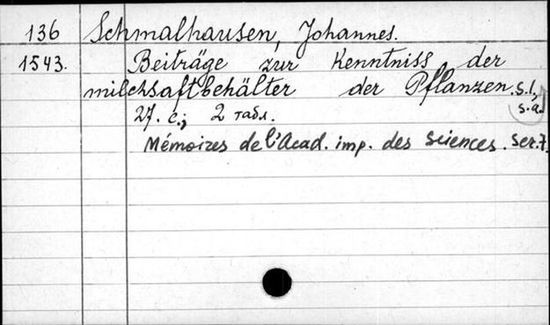 136 Schmalhausen, Johannes.
1543. Beiträge zur Kenntniss der
milchsaftbehälter der Pflanzen. s.l,
s.a.
27. с.; 2 табл.
Mémoires de l'Acad. imp. des sciences. Ser. 7